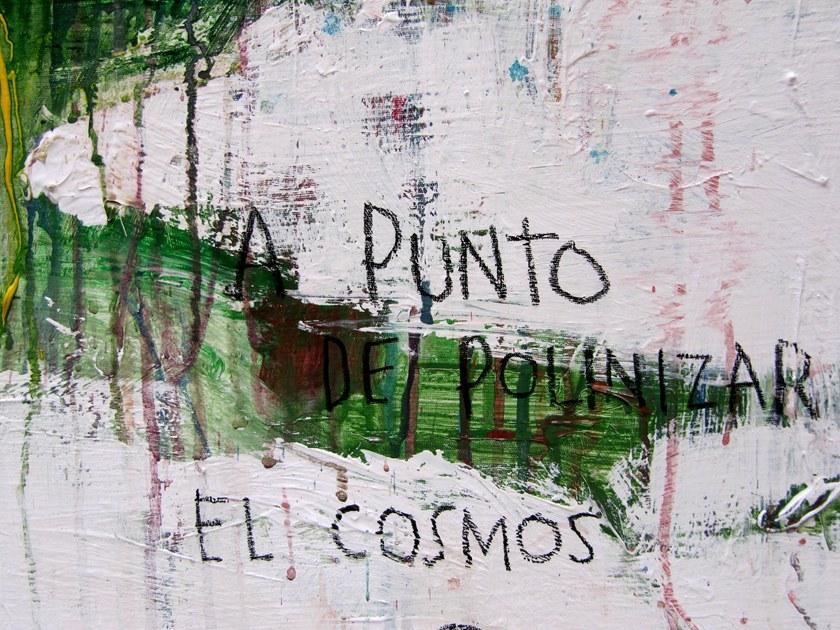 A PUNTO
DE POLINIZAR
EL COSMOS